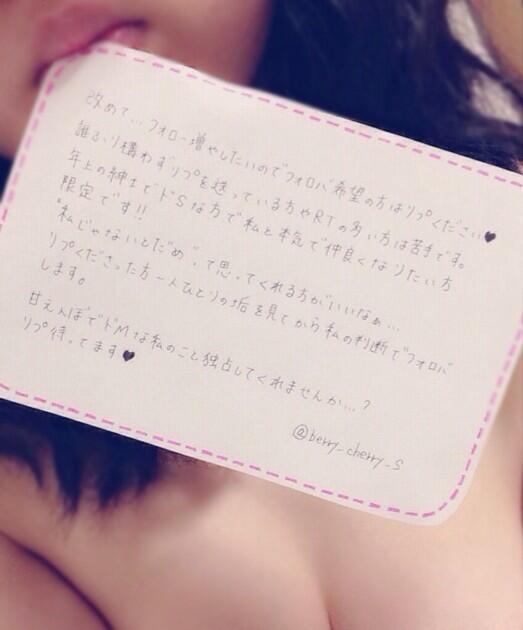 改めて…フォロー増やしたいのでフォロバ希望の方はリプください♥
誰ふり構わずリプを送っている方やRTの多い方は苦手です。
年上の紳士でドSな方で私と本気で仲良くなりたい方
限定です!!
"私じゃないとだめ"って思ってくれる方がいいなぁ…
リプくださった方一人ひとりの垢を見てから私の判断でフォロバ
します。
甘えんぼでドMな私のこと独占してくれませんか…?
リプ待ってます♥
@berry_cherry_s